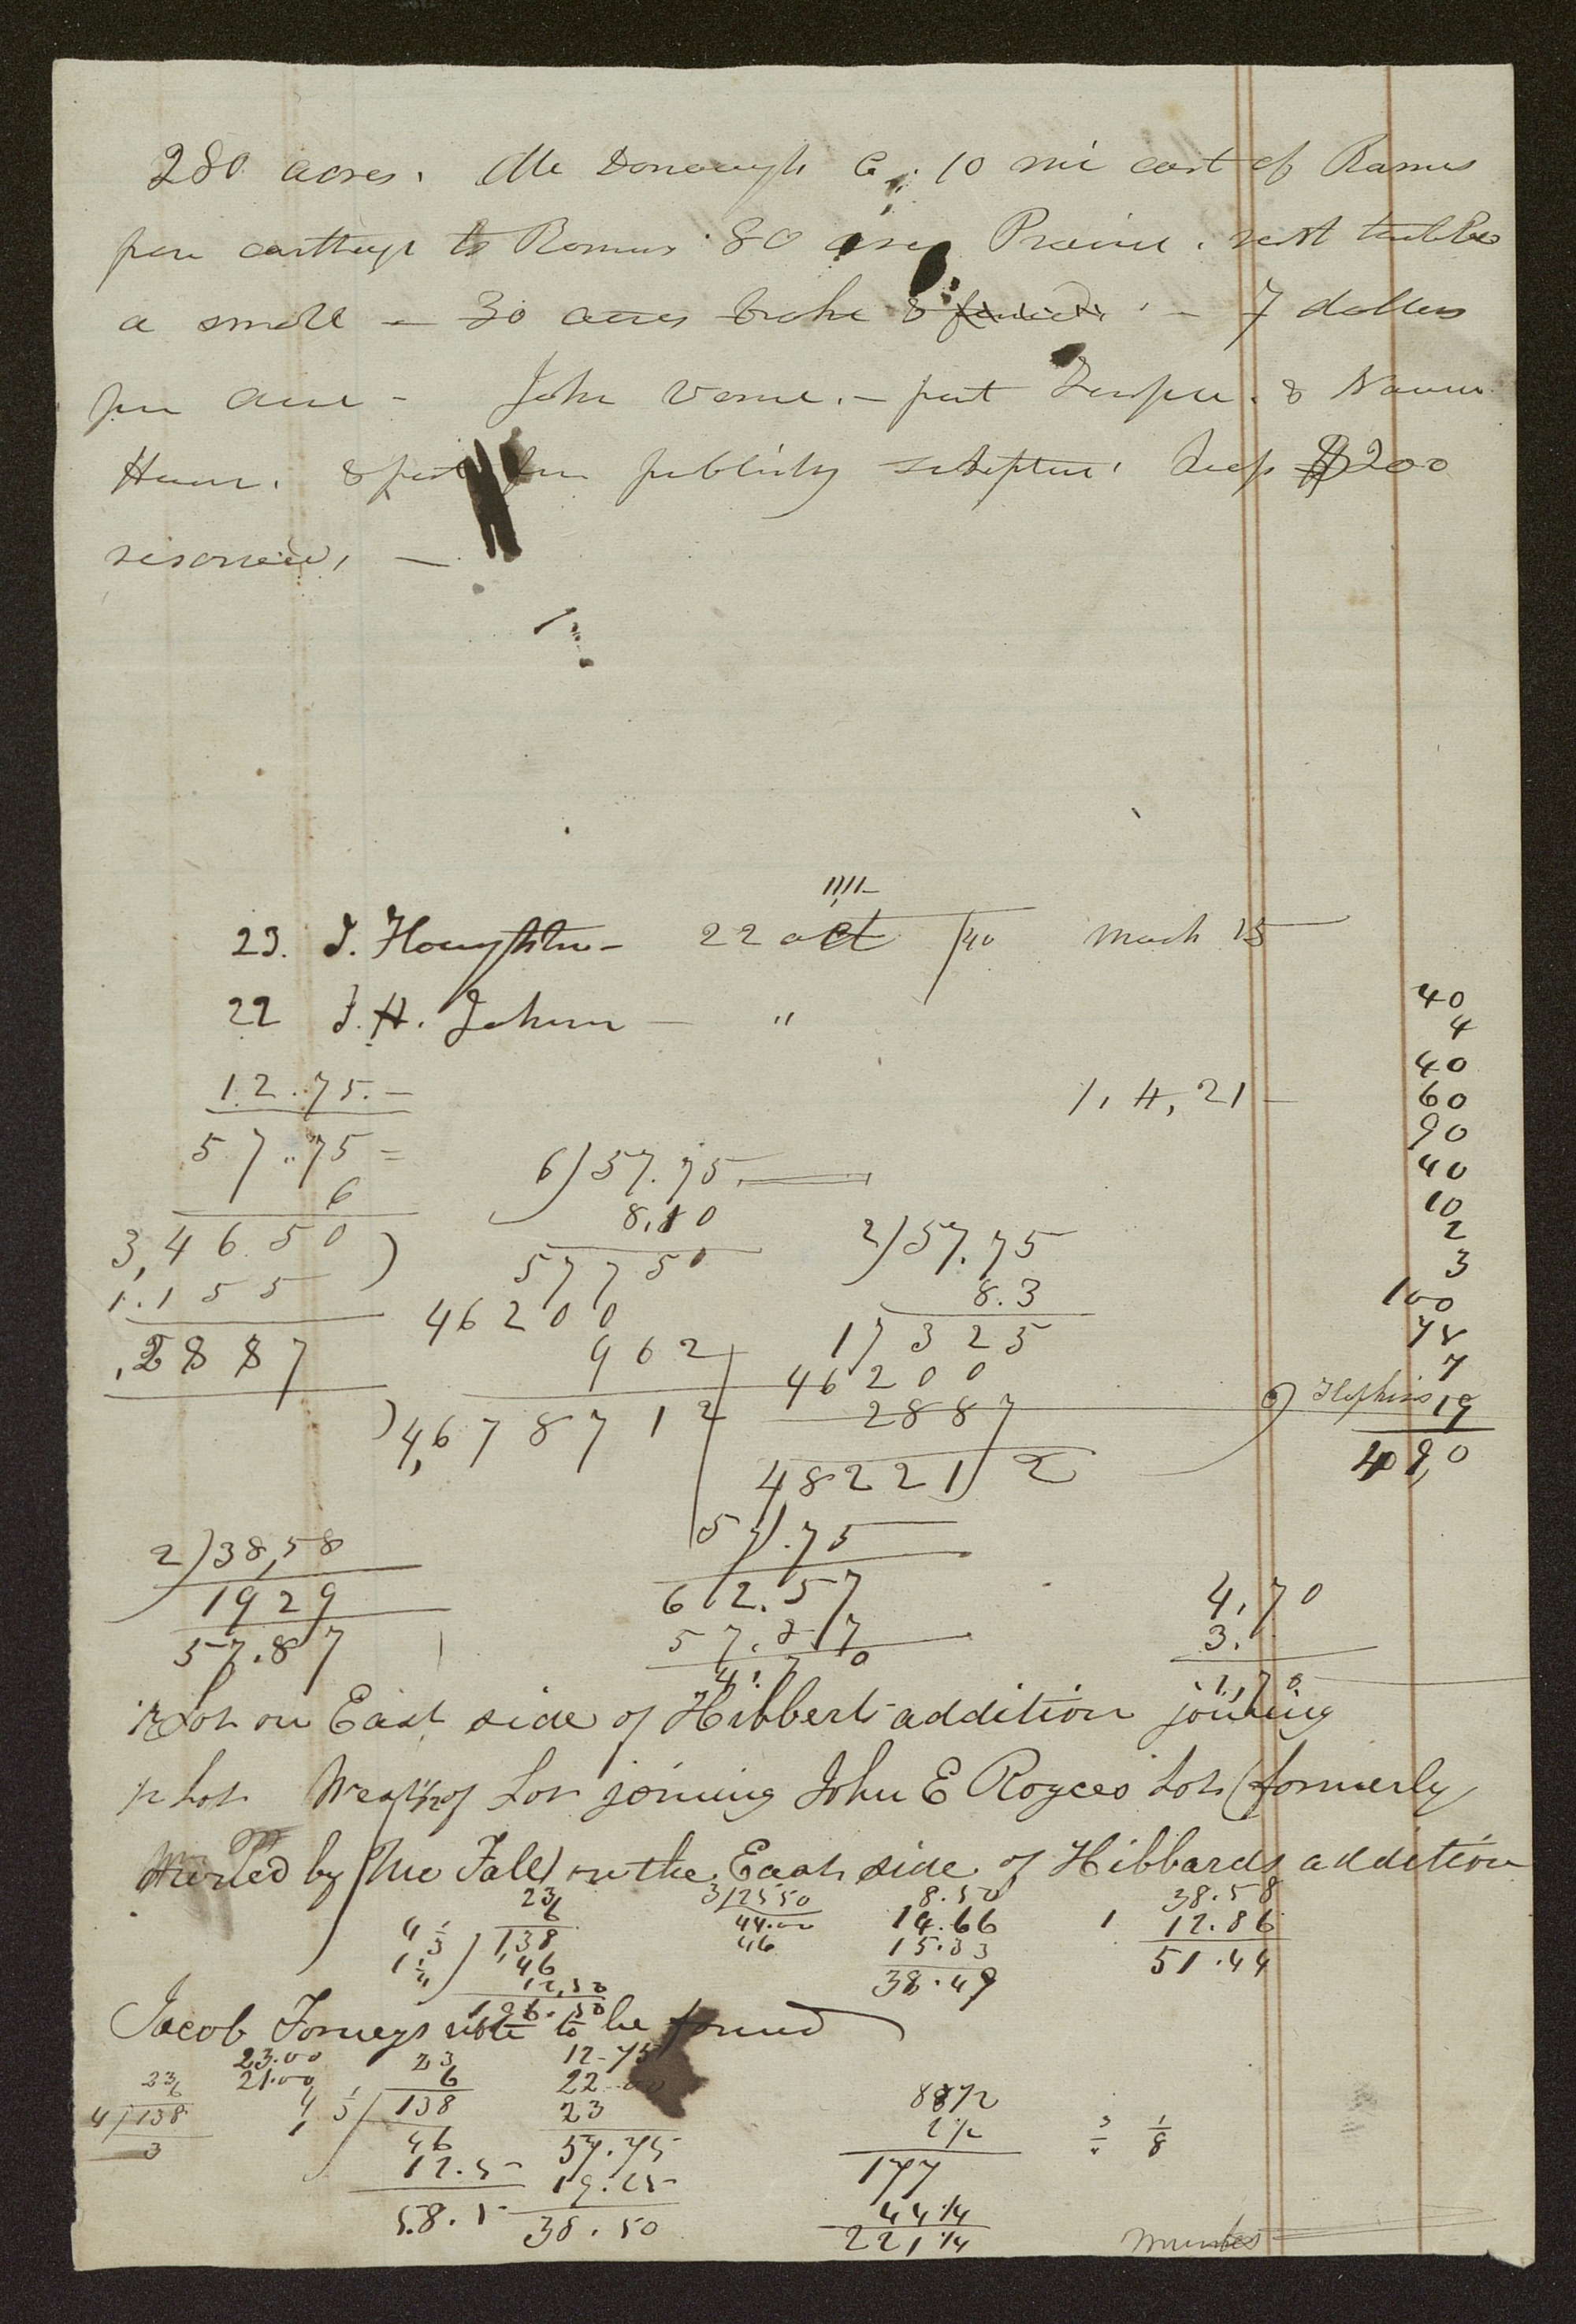 280 acres. Mc Donough Co. 10 mi east of Ramus
per carthage to Ramus 80 acres Prairie. rest timber
a small — 30 acres broke & fenced. — 7 dollars
per acre — John — put Temple. & Nauvoo
House. & part for publishing scripture. keep $200
reserved. —
23. J. Houghton — 22 oct /40 March 15
22 J. H. Johnson — "
40
4
40
60
90
40
10
2
3
100
74
7
Hopkins 19
409,0
1, 4, 21 —
12.75. —
57..75 =
6
3,4650
1.155
.2887
6)57.75
8.10
57750
46200
962
4,678712
2)57.75
8.3
17325
46200
2887
482212
57.75
612.57
57.87
4.70
2)38,58
1929
57.87
4,70
3.
1,70
½ Lot on East side of Hibberts addition joining
½ Lot West ½ of Lot joining John E Royces Lot (formerly
owned by Mc Fall) on the East side of Hibbards addition
23
6
4 ⅓ 138
1 ¼ 46
12,50
196.50
3/25 50
44.00
46
8.50
14.66
15.33
38.49
38.58
1 12.86
51.44
Jacob Forneys note to be found
23
6
4/138
3
23.00
21.00
23
6
4 ⅓ 138
1 46
12.5
58.5
12-75
22-00
23
57.75
19.25
38.50
88½
2½
177
44¼
221¼
⅛